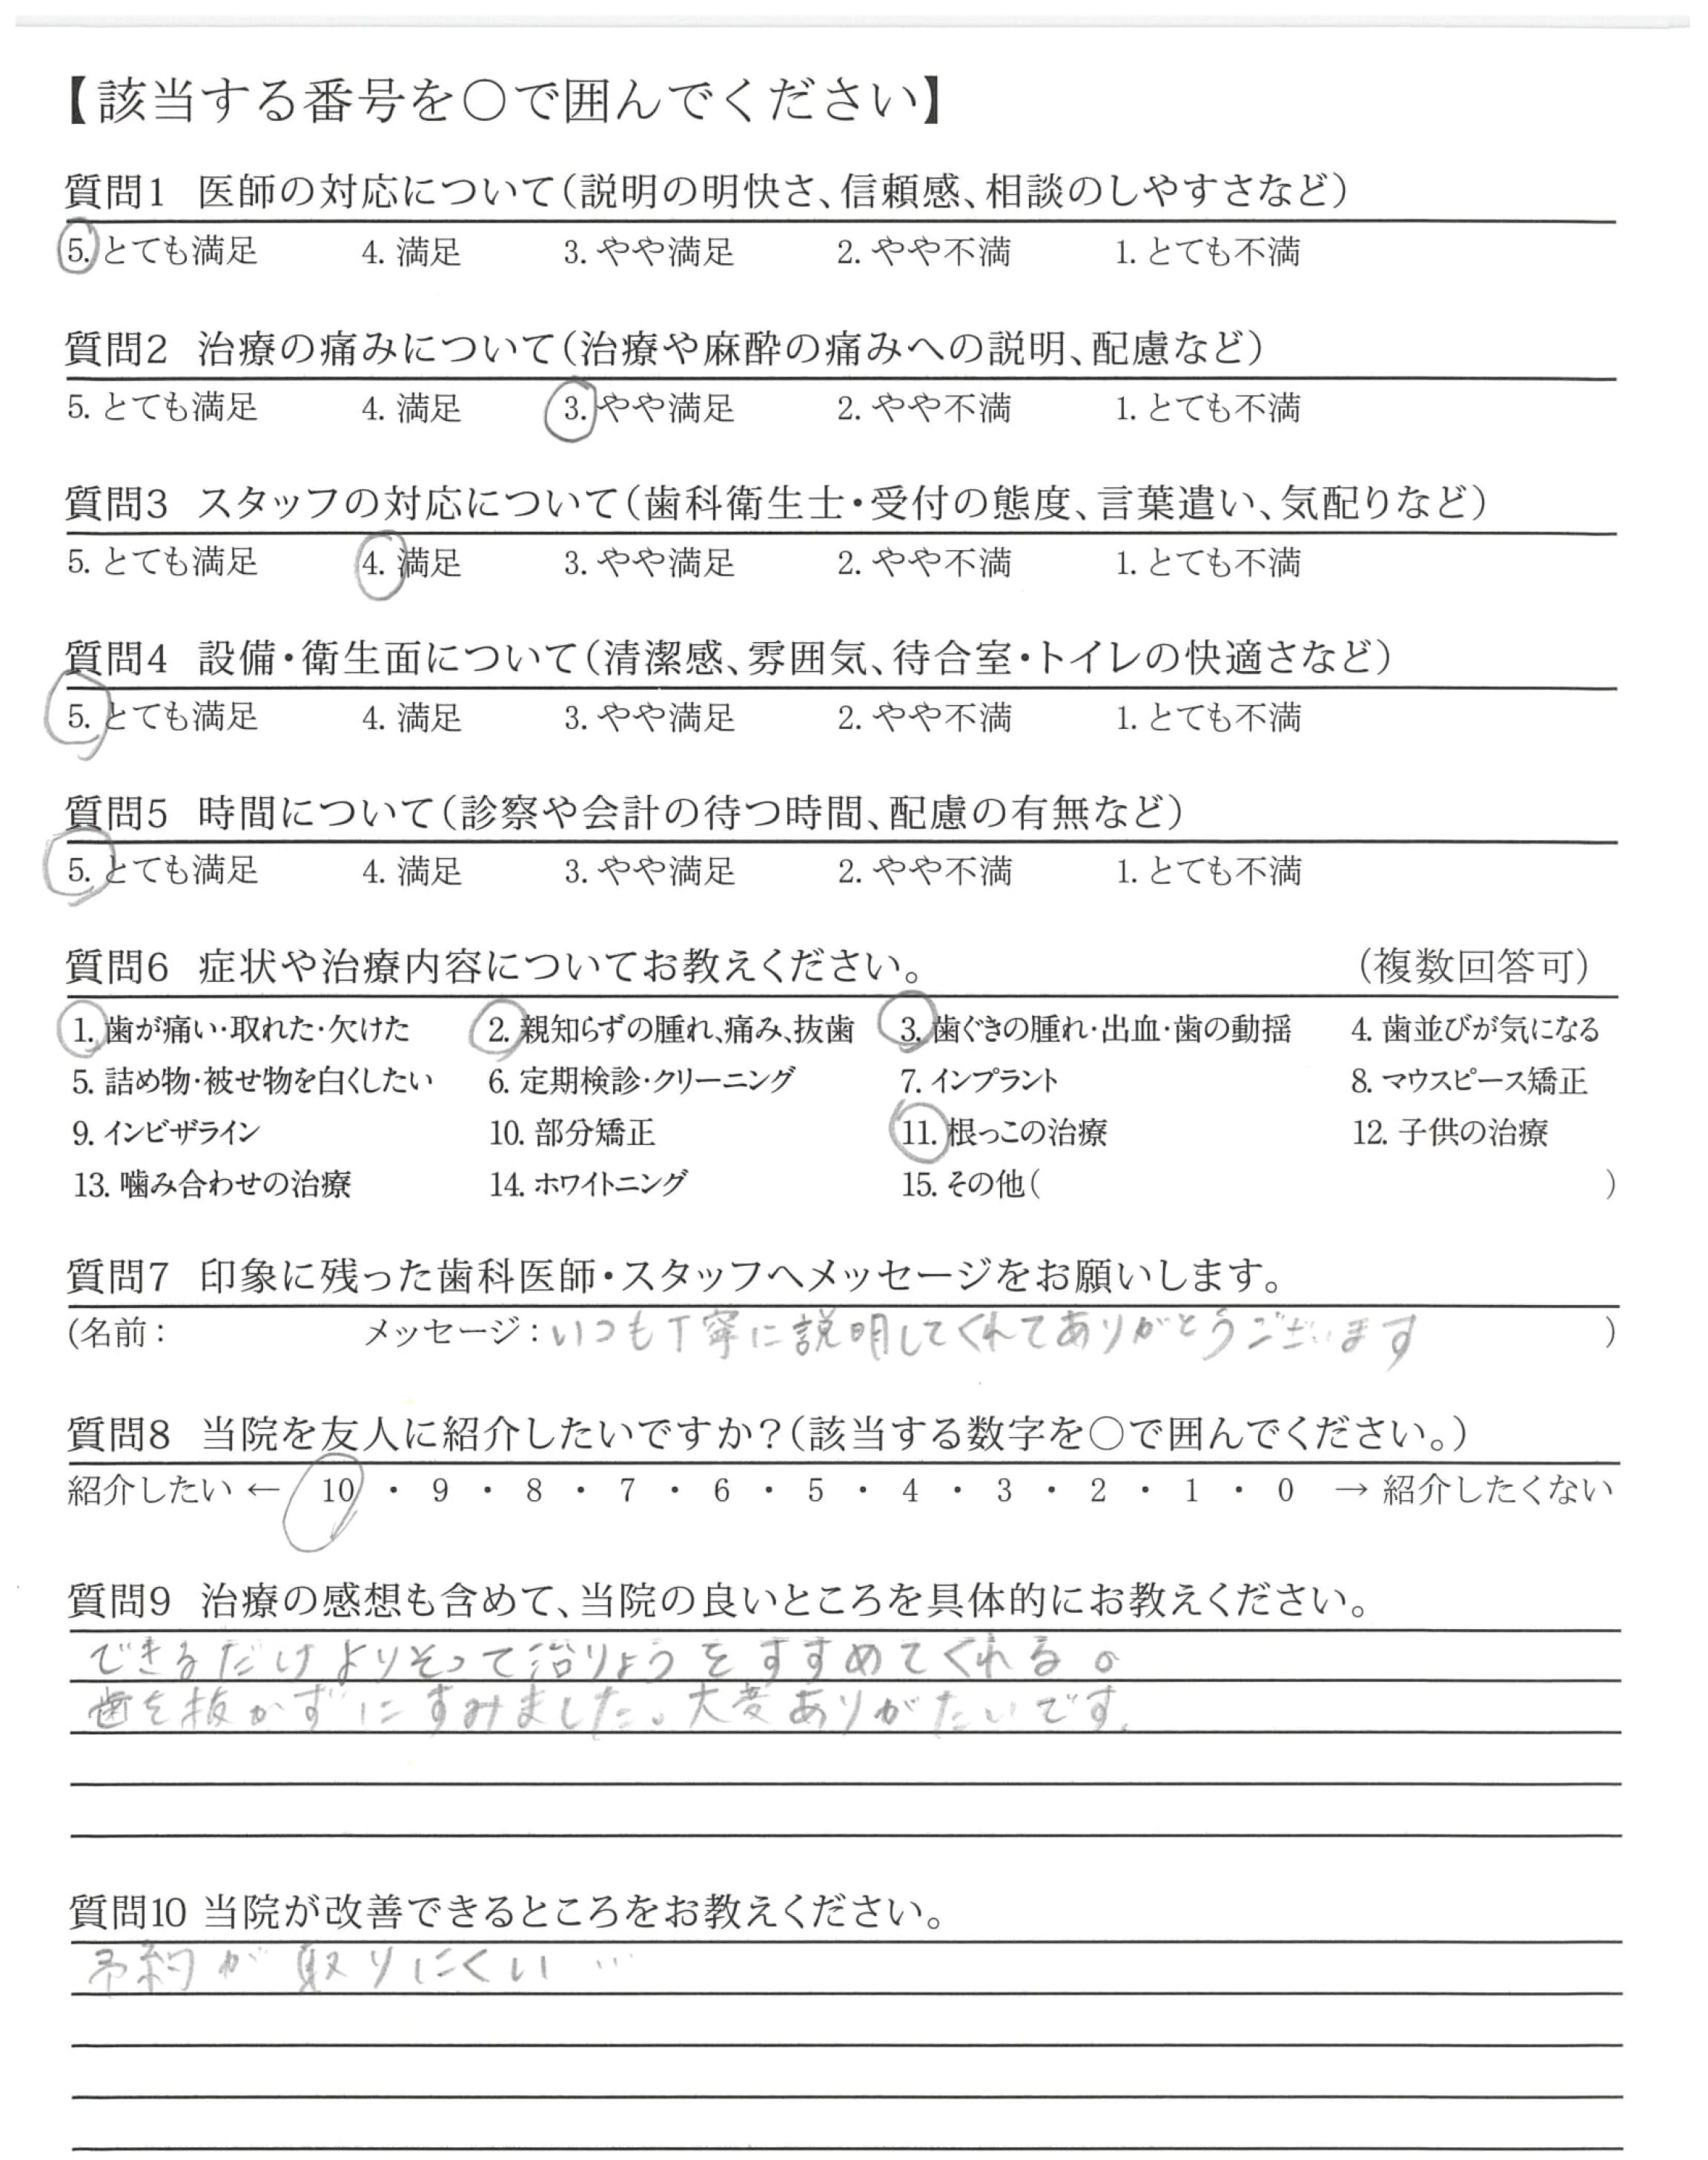 【該当する番号を○で囲んでください】
質問1 医師の対応について(説明の明快さ、信頼感、相談のしやすさなど)
5. とても満足 4. 満足 3. やや満足 2. やや不満 1. とても不満
質問2 治療の痛みについて(治療や麻酔の痛みへの説明、配慮など)
5. とても満足 4. 満足 3. やや満足 2. やや不満 1. とても不満
質問3 スタッフの対応について(歯科衛生士・受付の態度、言葉遣い、気配りなど)
5. とても満足 4. 満足 3. やや満足 2. やや不満 1. とても不満
質問4 設備・衛生面について(清潔感、雰囲気、待合室・トイレの快適さなど)
5. とても満足 4. 満足 3. やや満足 2. やや不満 1. とても不満
質問5 時間について(診察や会計の待つ時間、配慮の有無など)
5. とても満足 4. 満足 3. やや満足 2. やや不満 1. とても不満
質問6 症状や治療内容についてお教えください。 (複数回答可)
1. 歯が痛い・取れた・欠けた 2. 親知らずの腫れ、痛み、抜歯 3. 歯ぐきの腫れ・出血・歯の動揺 4. 歯並びが気になる
5. 詰め物・被せ物を白くしたい 6. 定期検診・クリーニング 7. インプラント 8. マウスピース矯正
9. インビザライン 10. 部分矯正 11. 根っこの治療 12. 子供の治療
13. 噛み合わせの治療 14. ホワイトニング 15. その他( )
質問7 印象に残った歯科医師・スタッフへメッセージをお願いします。
(名前: メッセージ:いつも丁寧に説明してくれてありがとうございます )
質問8 当院を友人に紹介したいですか?(該当する数字を○で囲んでください。)
紹介したい ← 10 ・ 9 ・ 8 ・ 7 ・ 6 ・ 5 ・ 4 ・ 3 ・ 2 ・ 1 ・ 0 → 紹介したくない
質問9 治療の感想も含めて、当院の良いところを具体的にお教えください。
できるだけよりそって治りょうをすすめてくれる。
歯を抜かずにすみました。大変ありがたいです。
質問10 当院が改善できるところをお教えください。
予約が取りにくい…